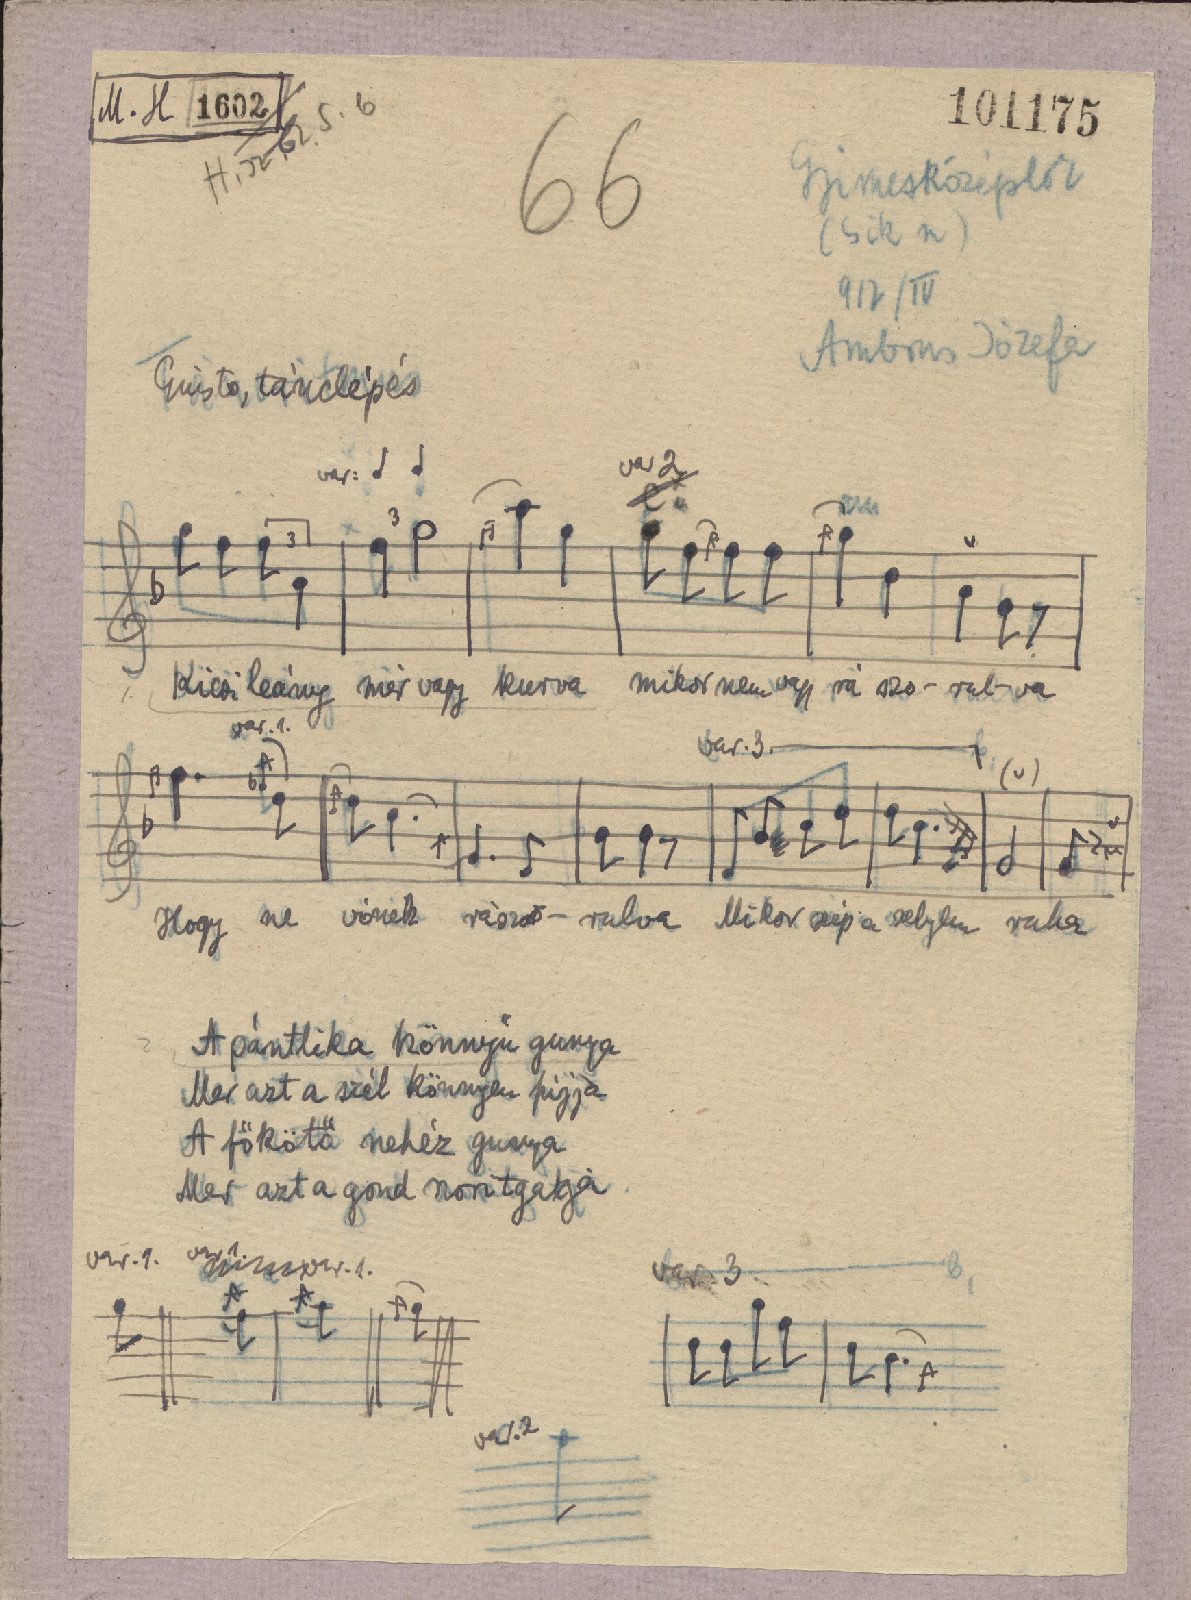 M. H 1602
101175
H.sz. 62. 5. 6
66
Gyimesközéplok
(Csík m)
912/IV
Ambrus Józefa
Giusto, tánclépés
var:
3
var 2
3
Kicsi leány mér vagy kurva mikor nem vagy rá szo- rul-va
var. 1.
var. 3.
(υ)
Hogy ne vónék rászo- rulva Mikor szép a selyem ruha
A pántlika könnyű gunya
Mer azt a szél könnyen fújja
A főkötő nehéz gunya
Mer azt a gond norítgatja
var. 1. var 1. var. 1.
var. 3.
var. 2